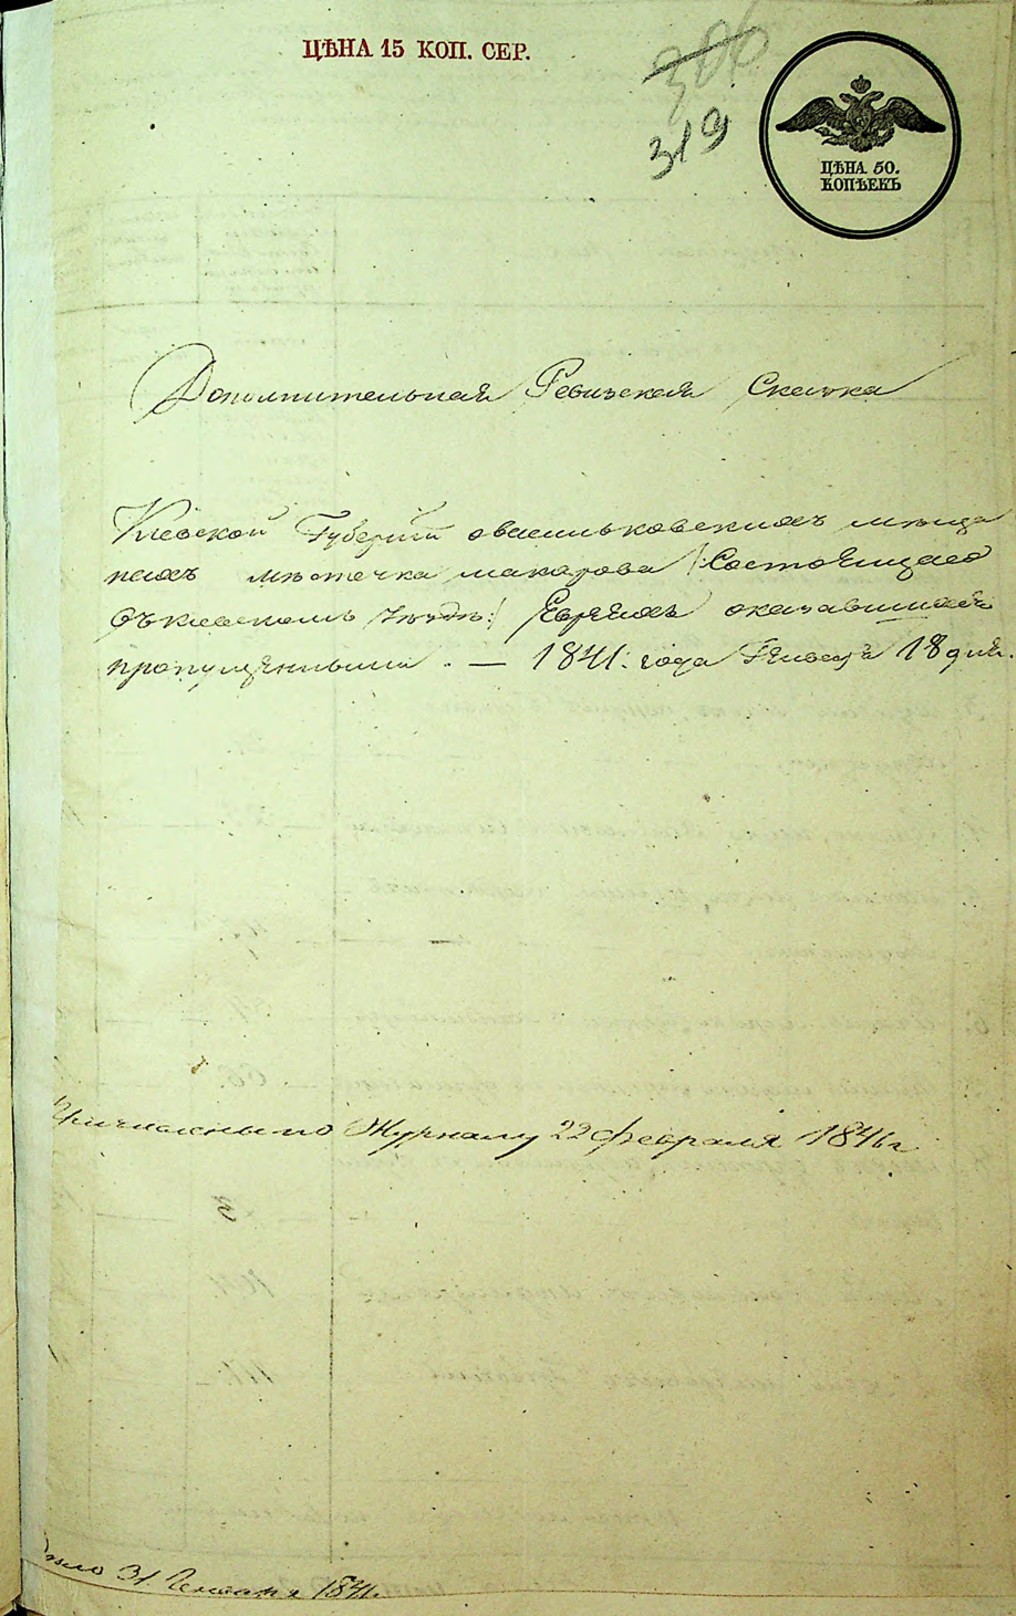 ЦѢНА 15 КОП. СЕР.
306
319
ЦѢНА 50.
КОПѢЕКЪ
Дополнительная Ревизская Сказка
Кіевской Губерніи о васильковскихъ мѣща
нахъ мѣстечка макарова /:Состоящаго
въ кіевскомъ уѣздѣ:/ Евреяхъ оказавшихся
пропущенными. — 1841. года Генваря 18 дня.
Причислены по Журналу 22 февраля 1846 г
31. Генваря 1841.